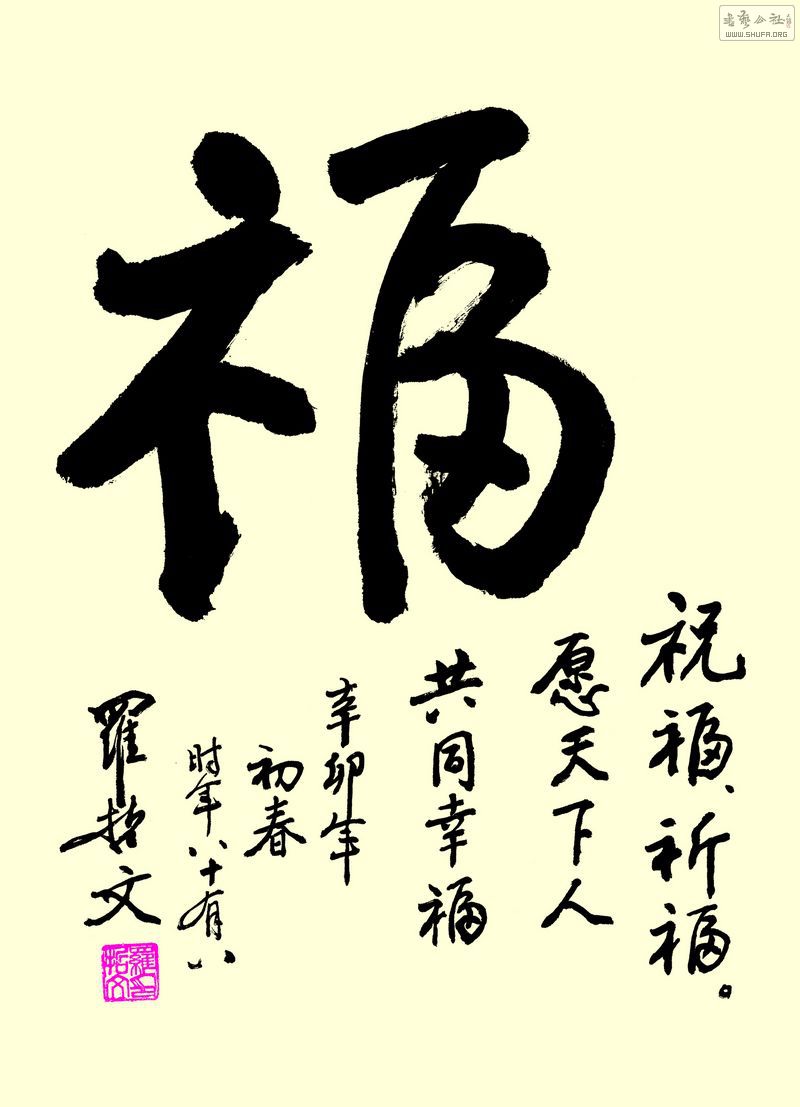 福
祝福、祈福。
愿天下人
共同幸福
辛卯年
初春
时年八十有八
羅哲文
書藝公社
WWW.SHUFA.ORG